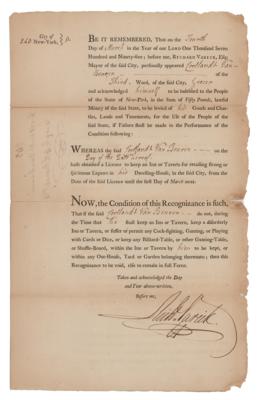 City of
New-York,
BE IT REMEMBERED, That on the Fourth
Day of March in the Year of our LORD One Thousand Seven
Hundred and Ninety-five; before me, RICHARD VARICK, Esq;
Mayor of the said City, personally appeared Cortlandt Van
Beuren of the
Third Ward, of the said City, Grocer
and acknowledged himself to be indebted to the People
of the State of New-York, in the Sum of Fifty Pounds, lawful
Money of the said State, to be levied of his Goods and Chattles,
Lands and Tenements, for the Use of the People of the
said State, if Failure shall be made in the Performance of the
Condition following:
WHEREAS the said Cortlandt Van Beuren
Day of the Date hereof
hath obtained a Licence to keep an Inn or Tavern for retailing Strong or
Spirituous Liquors in his Dwelling-House, in the said City, from the
Date of the said Licence until the first Day of March next:
NOW, the Condition of this Recognizance is such,
That if the said Cortlandt Van Beuren do not, during
the Time that he shall keep an Inn or Tavern, keep a disorderly
Inn or Tavern, or suffer or permit any Cock-fighting, Gaming, or Playing
with Cards or Dice, or keep any Billiard-Table, or other Gaming-Table,
or Shuffle-Board, within the Inn or Tavern by him to be kept, or
within any Out-House, Yard or Garden belonging thereunto; then this
Recognizance to be void, else to remain in full Force.
Taken and acknowledged the Day
and Year above-written,
Before me,
Richd Varick